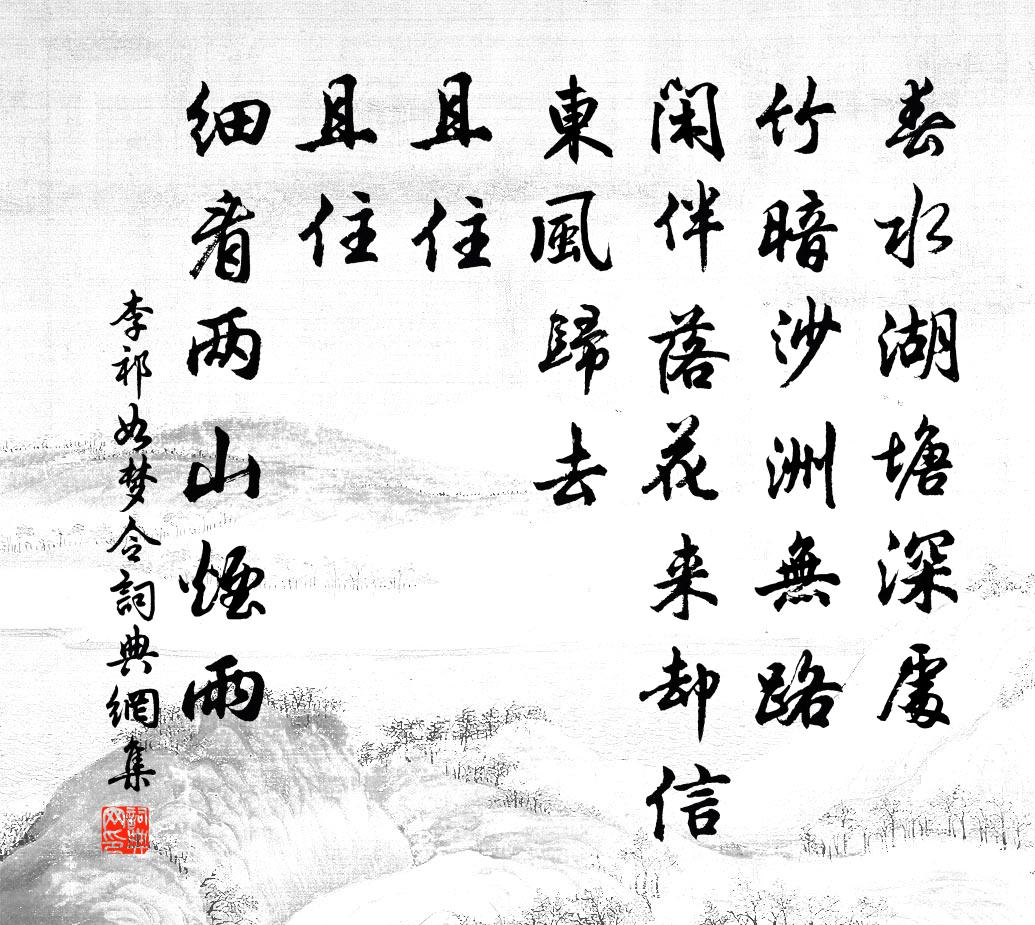 春水湖塘深處
竹暗沙洲無路
閑伴落花来却信
東風歸去
且住
且住
細看两山煙雨
李祁如梦令詞典網集
詞典网印